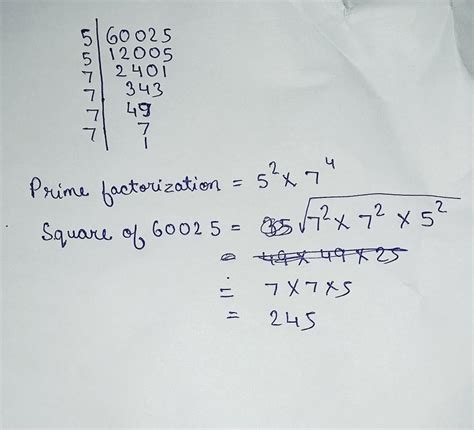 5 | 60025
5 | 12005
7 | 2401
7 | 343
7 | 49
7 | 7
1
Prime factorization = 5² × 7⁴
Square of 60025 = √7² × 7² × 5²
= 49 × 49 × 25
= 7 × 7 × 5
= 245